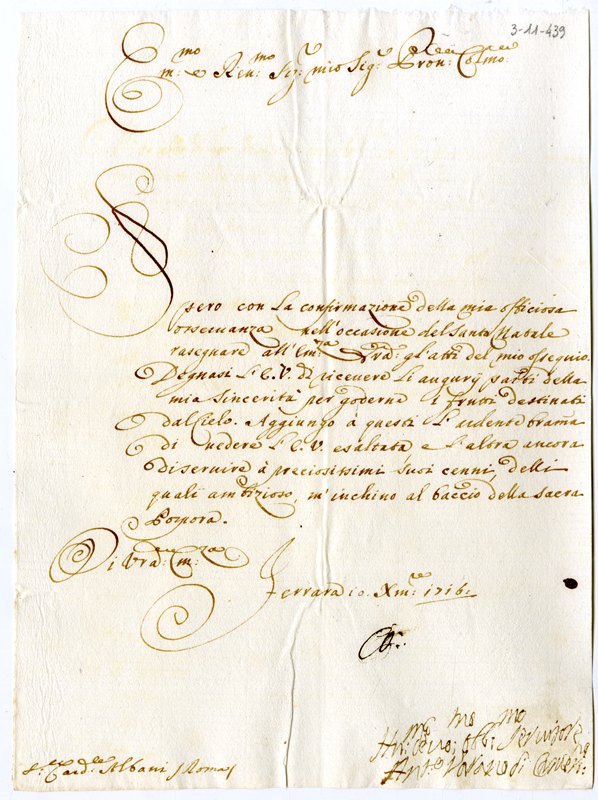 3-11-439
Em:mo e Ren:mo Sig:r mio Sig:r Pron: Col:mo
Spero con La confirmazione della mia officiosa
osseruanza nell'occasione del Santo Natale
rasegnare all'Em:za Vra: gl'atti del mio ossequio.
Degnasi L'E.V. di riceuere Li augurij parti della
mia sincerità per goderne i frutti destinati
dal Cielo. Aggiunzo à questi L'ardente brama
di uedere L'E.V. esaltata, e L'altra ancora
di seruire à preciosissimi suoi cenni, delli
quali ambizioso, m'inchino al baccio della sacra
Porpora.
Di Vra: Em:za
Ferrara 10. Xm:re 1716:
Hu:mo Deuo: Obb:mo Seruitore
Ant:o Varano di Camer:no
S:r Card:le Albani / Roma /